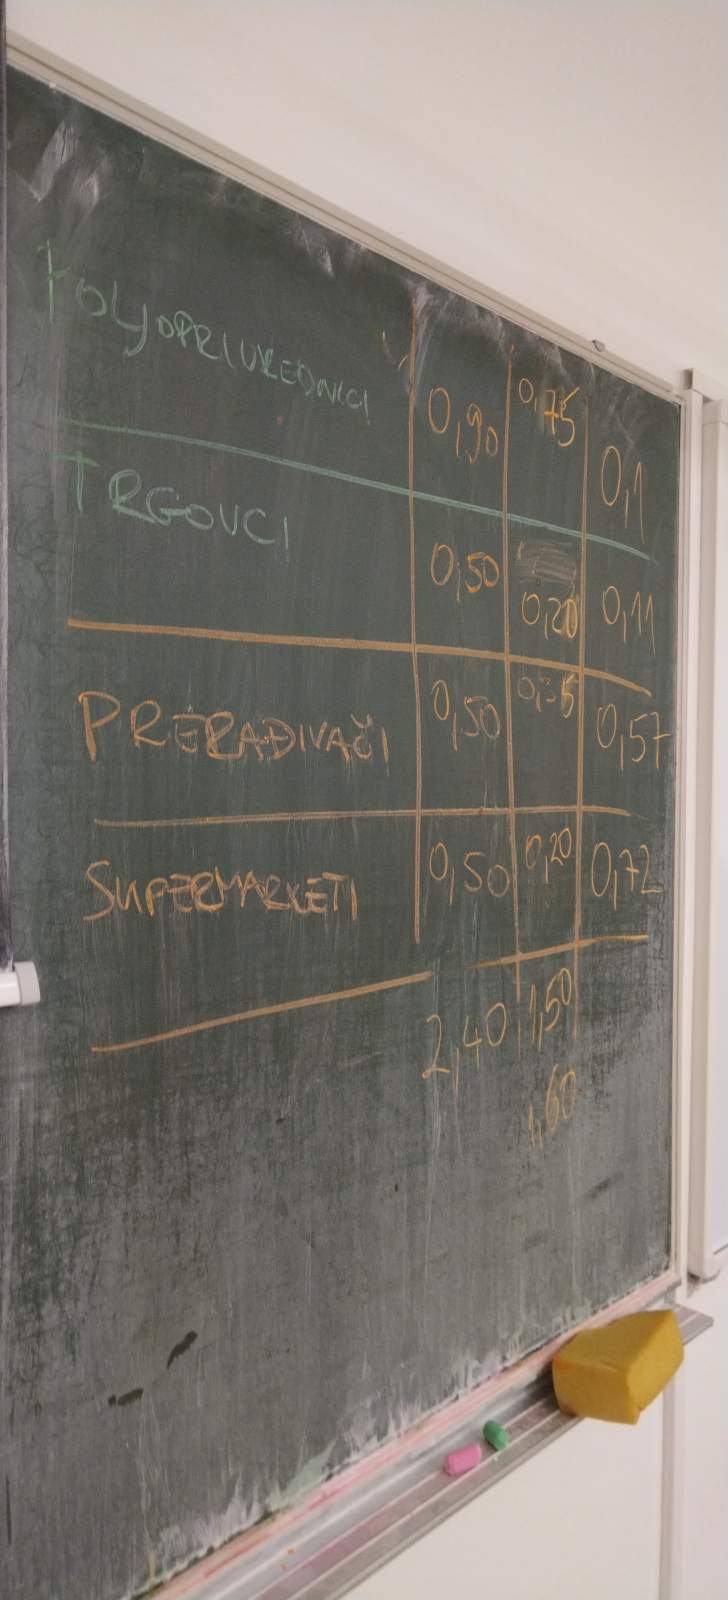 POLJOPRIVREDNICI 0,90 0,75 0,1
TRGOVCI 0,50 0,20 0,11
PRERAĐIVAČI 0,50 0,57
SUPERMARKETI 0,50 0,20 0,72
2,40 1,50
1,60